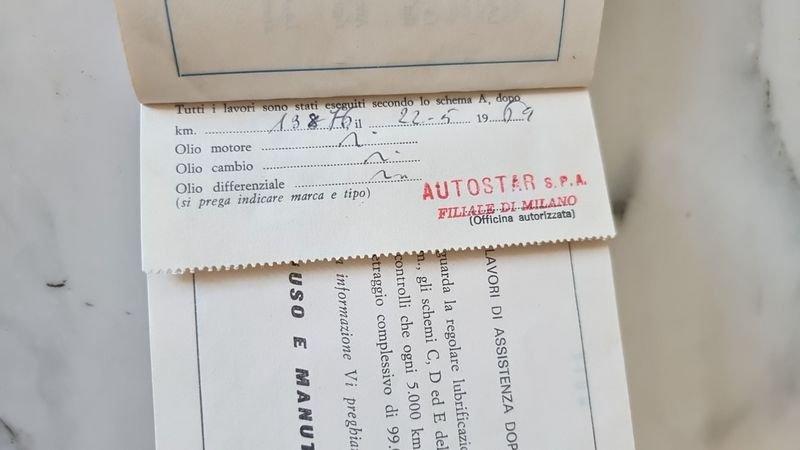 Tutti i lavori sono stati eseguiti secondo lo schema A, dopo
km. 13876 il 22-5 1969
Olio motore
Olio cambio
Olio differenziale
(si prega indicare marca e tipo)
AUTOSTAR S.P.A.
FILIALE DI MILANO
(Officina autorizzata)
LAVORI DI ASSISTENZA DOP
guarda la regolare lubrificazio
gli schemi C, D ed E del
controlli che ogni 5.000 km
etraggio complessivo di 99.
informazione Vi preghia
USO E MANUT